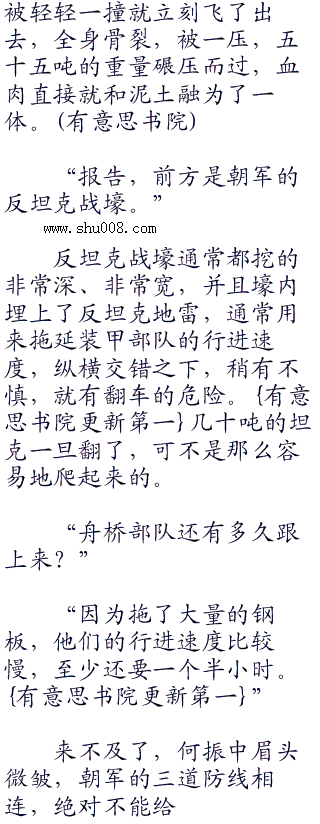 被轻轻一撞就立刻飞了出
去，全身骨裂，被一压，五
十五吨的重量碾压而过，血
肉直接就和泥土融为了一
体。(有意思书院)
“报告，前方是朝军的
反坦克战壕。”
www.shu008.com
反坦克战壕通常都挖的
非常深、非常宽，并且壕内
埋上了反坦克地雷，通常用
来拖延装甲部队的行进速
度，纵横交错之下，稍有不
慎，就有翻车的危险。{有意
思书院更新第一}几十吨的坦
克一旦翻了，可不是那么容
易地爬起来的。
“舟桥部队还有多久跟
上来？”
“因为拖了大量的钢
板，他们的行进速度比较
慢，至少还要一个半小时。
{有意思书院更新第一}”
来不及了，何振中眉头
微皱，朝军的三道防线相
连，绝对不能给